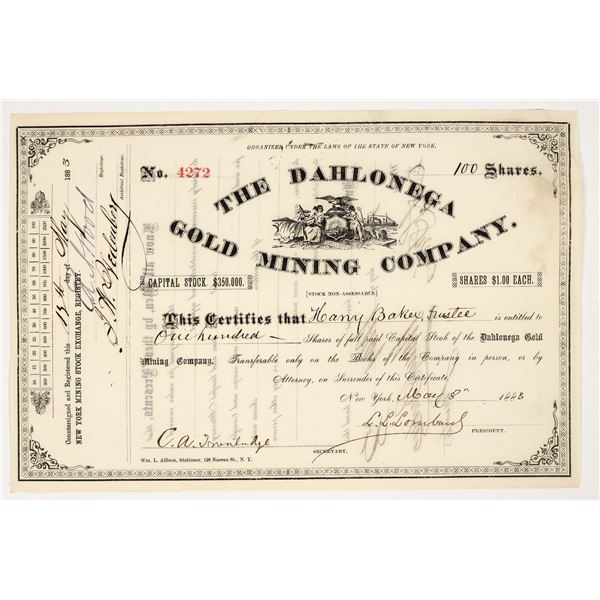 ORGANIZED UNDER THE LAWS OF THE STATE OF NEW YORK.
No. 4272
100 Shares.
THE DAHLONEGA
GOLD MINING COMPANY.
CAPITAL STOCK. $350.000.
SHARES $1.00 EACH.
[STOCK NON-ASSESSABLE]
This Certifies that Harry Baker, Trustee is entitled to
One hundred — Shares of full paid Capital Stock of the Dahlonega Gold
Mining Company. Transferable only on the Books of the Company in person, or by
Attorney, on Surrender of this Certificate.
New York, May 8th 1883
L. L. Lombard
PRESIDENT.
C. A. Trowbridge
SECRETARY.
Wm. L. Allison, Stationer, 128 Nassau St., N. Y.
Countersigned and Registered this day of May 1883
NEW YORK MINING STOCK EXCHANGE, REGISTRY.
Registrar.
Assistant Registrar.
10 20 30 40 50 60 70 80 90 100